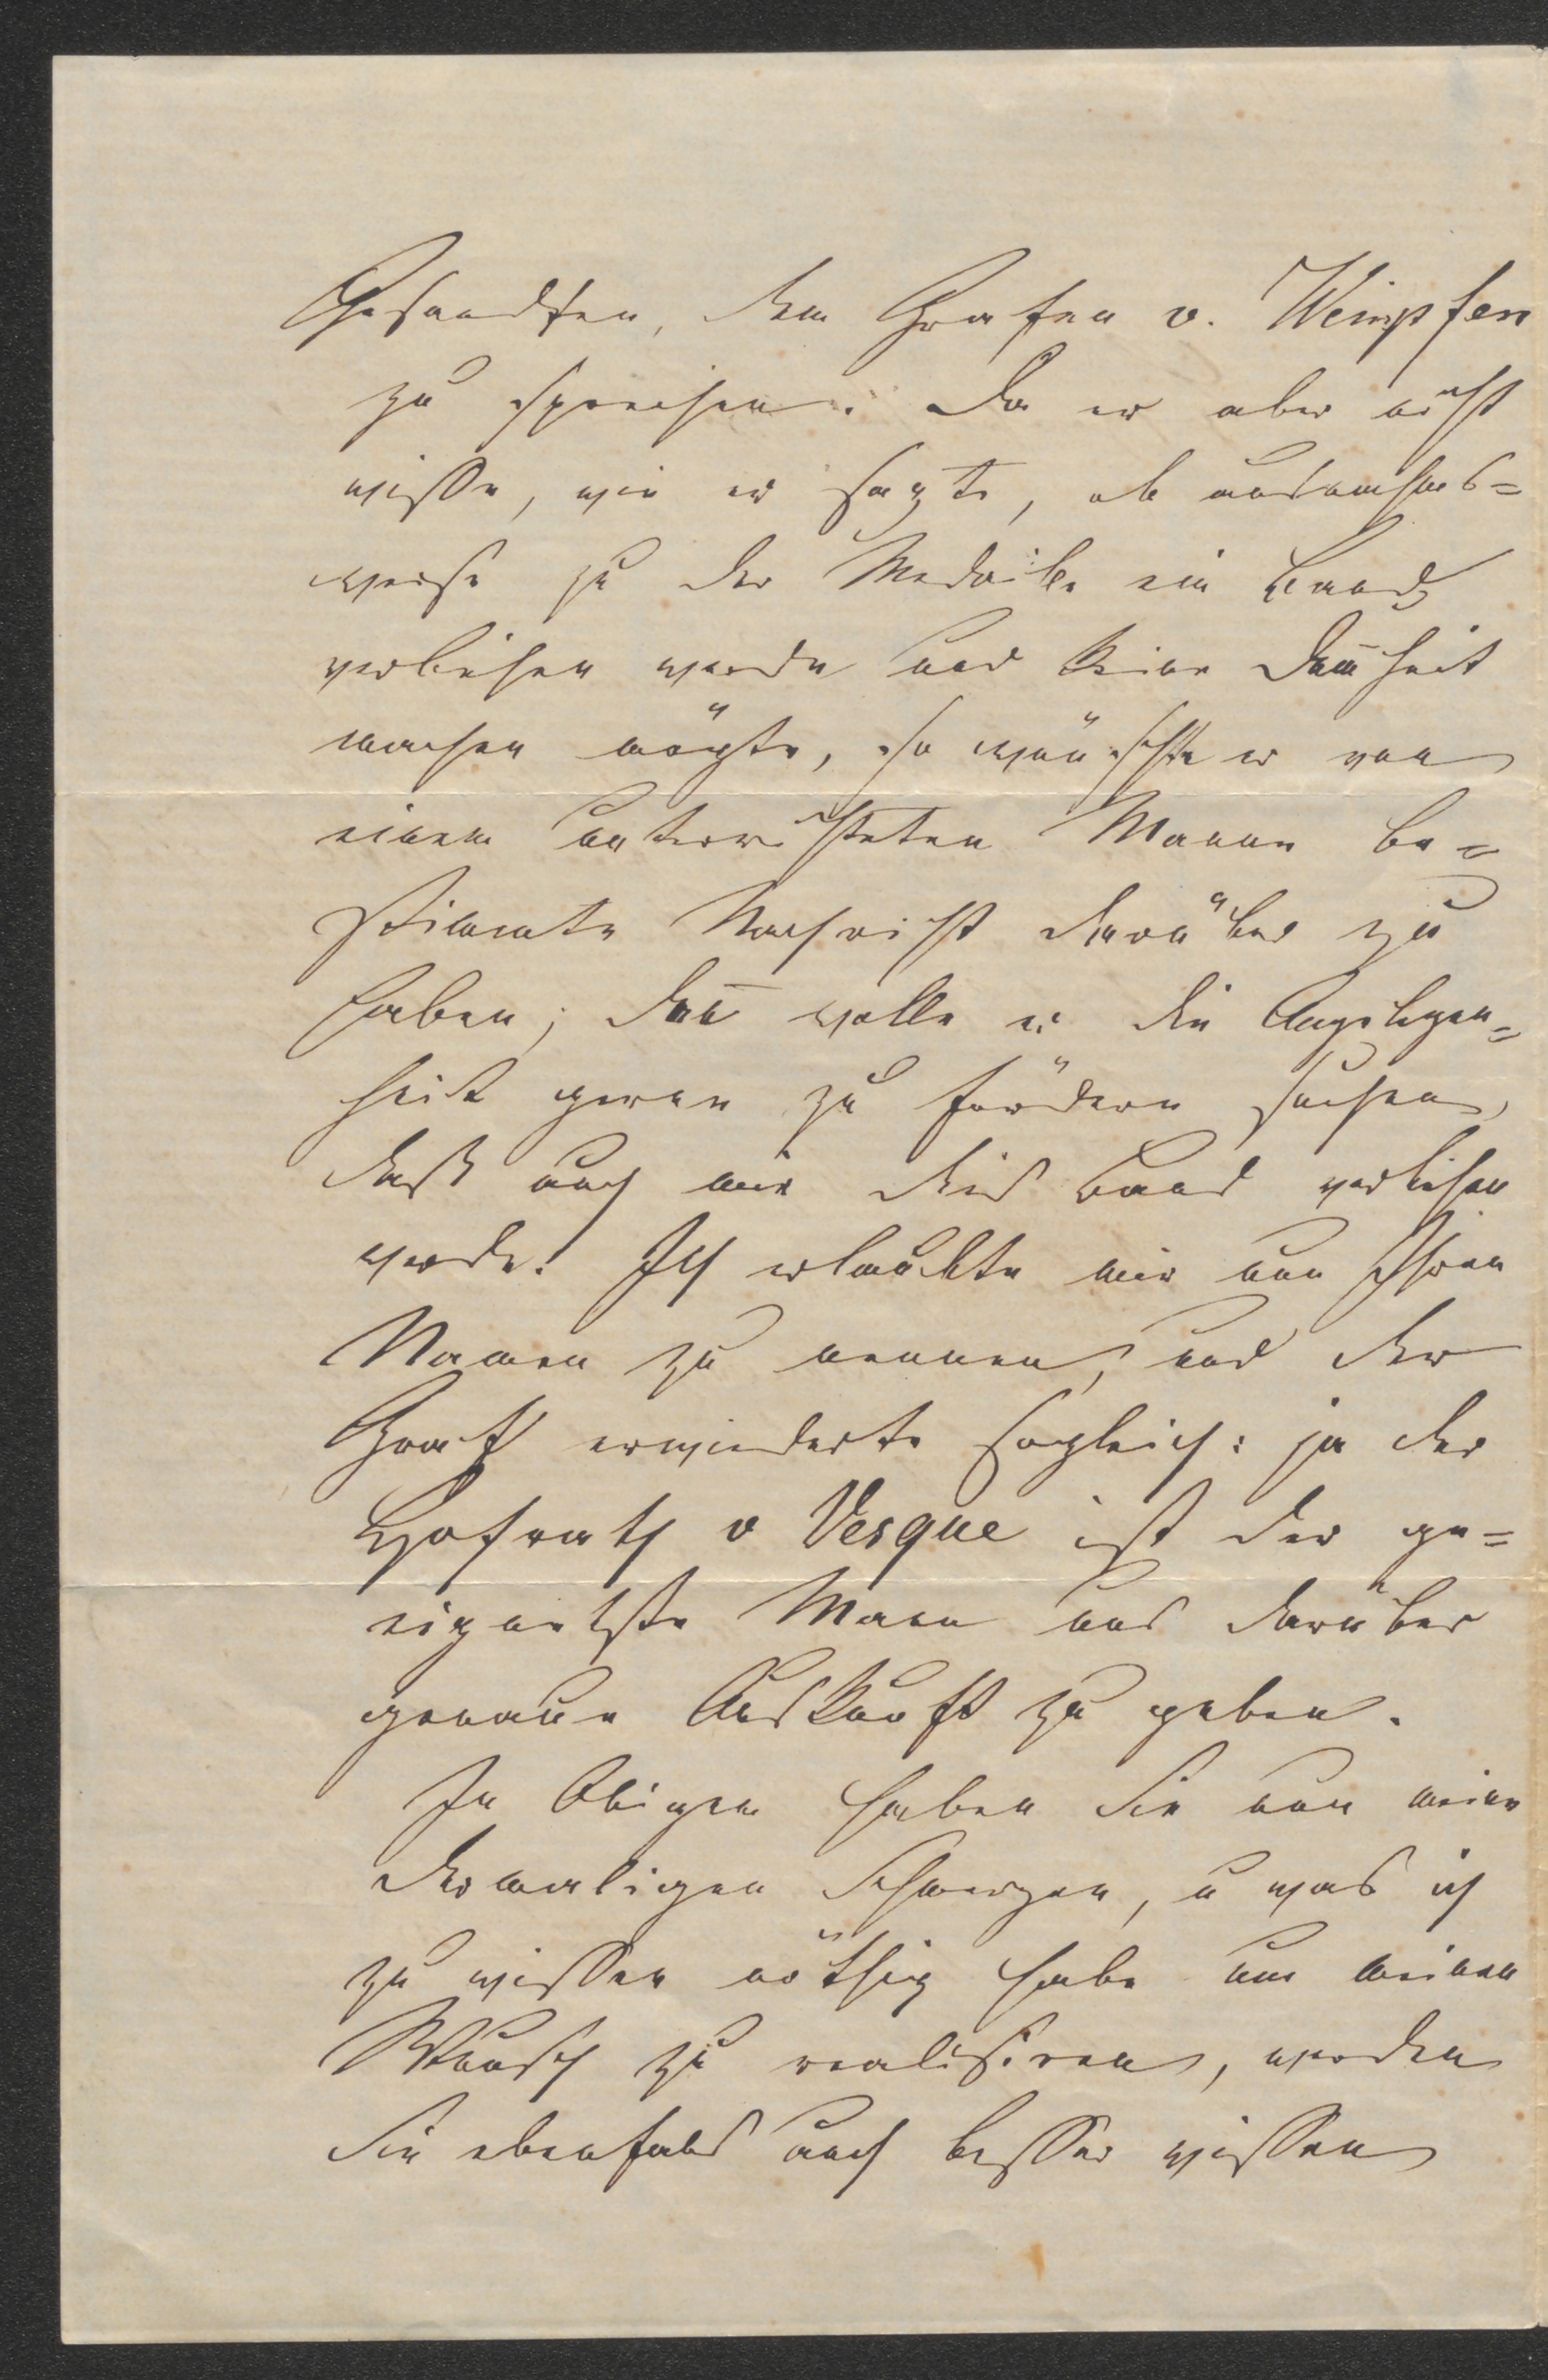 Gesandten, dem Grafen v. Wimpfen
zu sprechen. Da er aber nicht
wisse, wie er sagte, ob ausnahms=
weise zu der Medaille ein Band
verliehen werde und keine Dum̄heit
machen mögte, so wünschte er von
einem unterrichteten Manne be=
stimmte Nachricht darüber zu
haben; dan̄ wolle er die Angelegen=
heit gerne zu fördern suchen,
daß auch mir dies Band verliehen
werde. Ich erlaubte mir nun Ihren
Namen zu nennen, und der
Graf erwiederte sogleich: ja der
Hofrath v Vesque ist der ge=
eignetste Mann uns darüber
genaue Auskunft zu geben.
In Obigem haben Sie nun meine
dermaligen Schmerzen, u was ich
zu wissen nöthig habe um meinen
Wunsch zu realisiren, werden
Sie ebenfals auch besser wissen